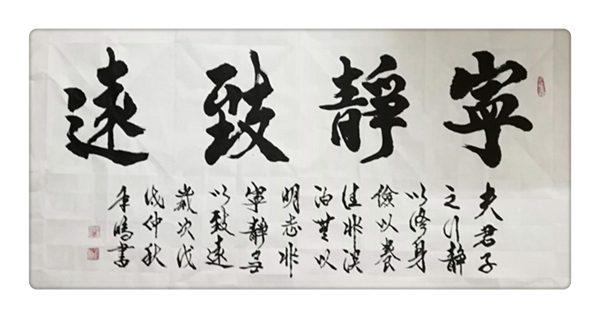 寧靜致遠
夫君子
之行靜
以修身
儉以養
德非淡
泊無以
明志非
寧靜無
以致遠
歲次戊
戌仲秋
書